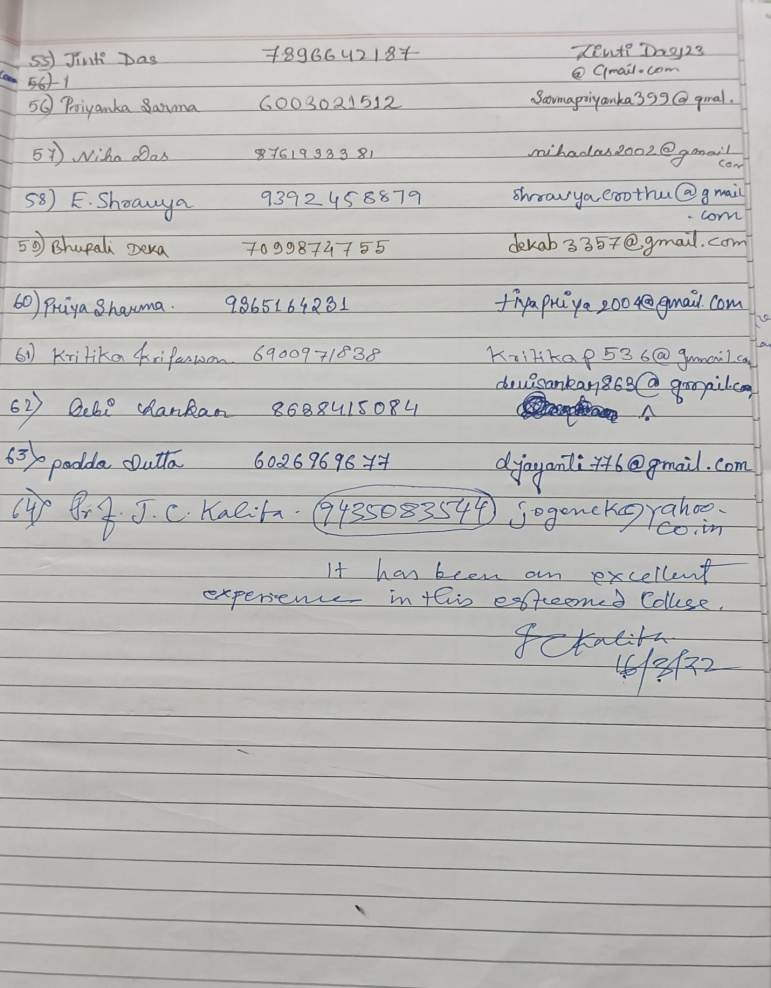 55) Jinti Das 7896642187 Zinti Das123
@ Gmail.com
56) 1
56) Priyanka Sarma 6003021512 Sarmapriyanka399@gmal.
57) Niha Das 8761933381 nihadas2002@gmail
com
58) E. Shravya 9392458879 shravyaerothu@gmail
.com
59) Bhupali Deka 7099874755 dekab3357@gmail.com
60) Priya Sharma. 9365164231 @gmail.com
61) Kritika 6900971838 Kritikap536@gmail.co
devisankar863@gmail.com
62) Debi 8638415084
63) podda Dutta 6026969677 djayanti776@gmail.com
64) Prof. J. C. Kalita. 9435083544 jogenck@yahoo.
co.in
It has been an excellent
experience in this esteemed College.
J C Kalita
16/3/22